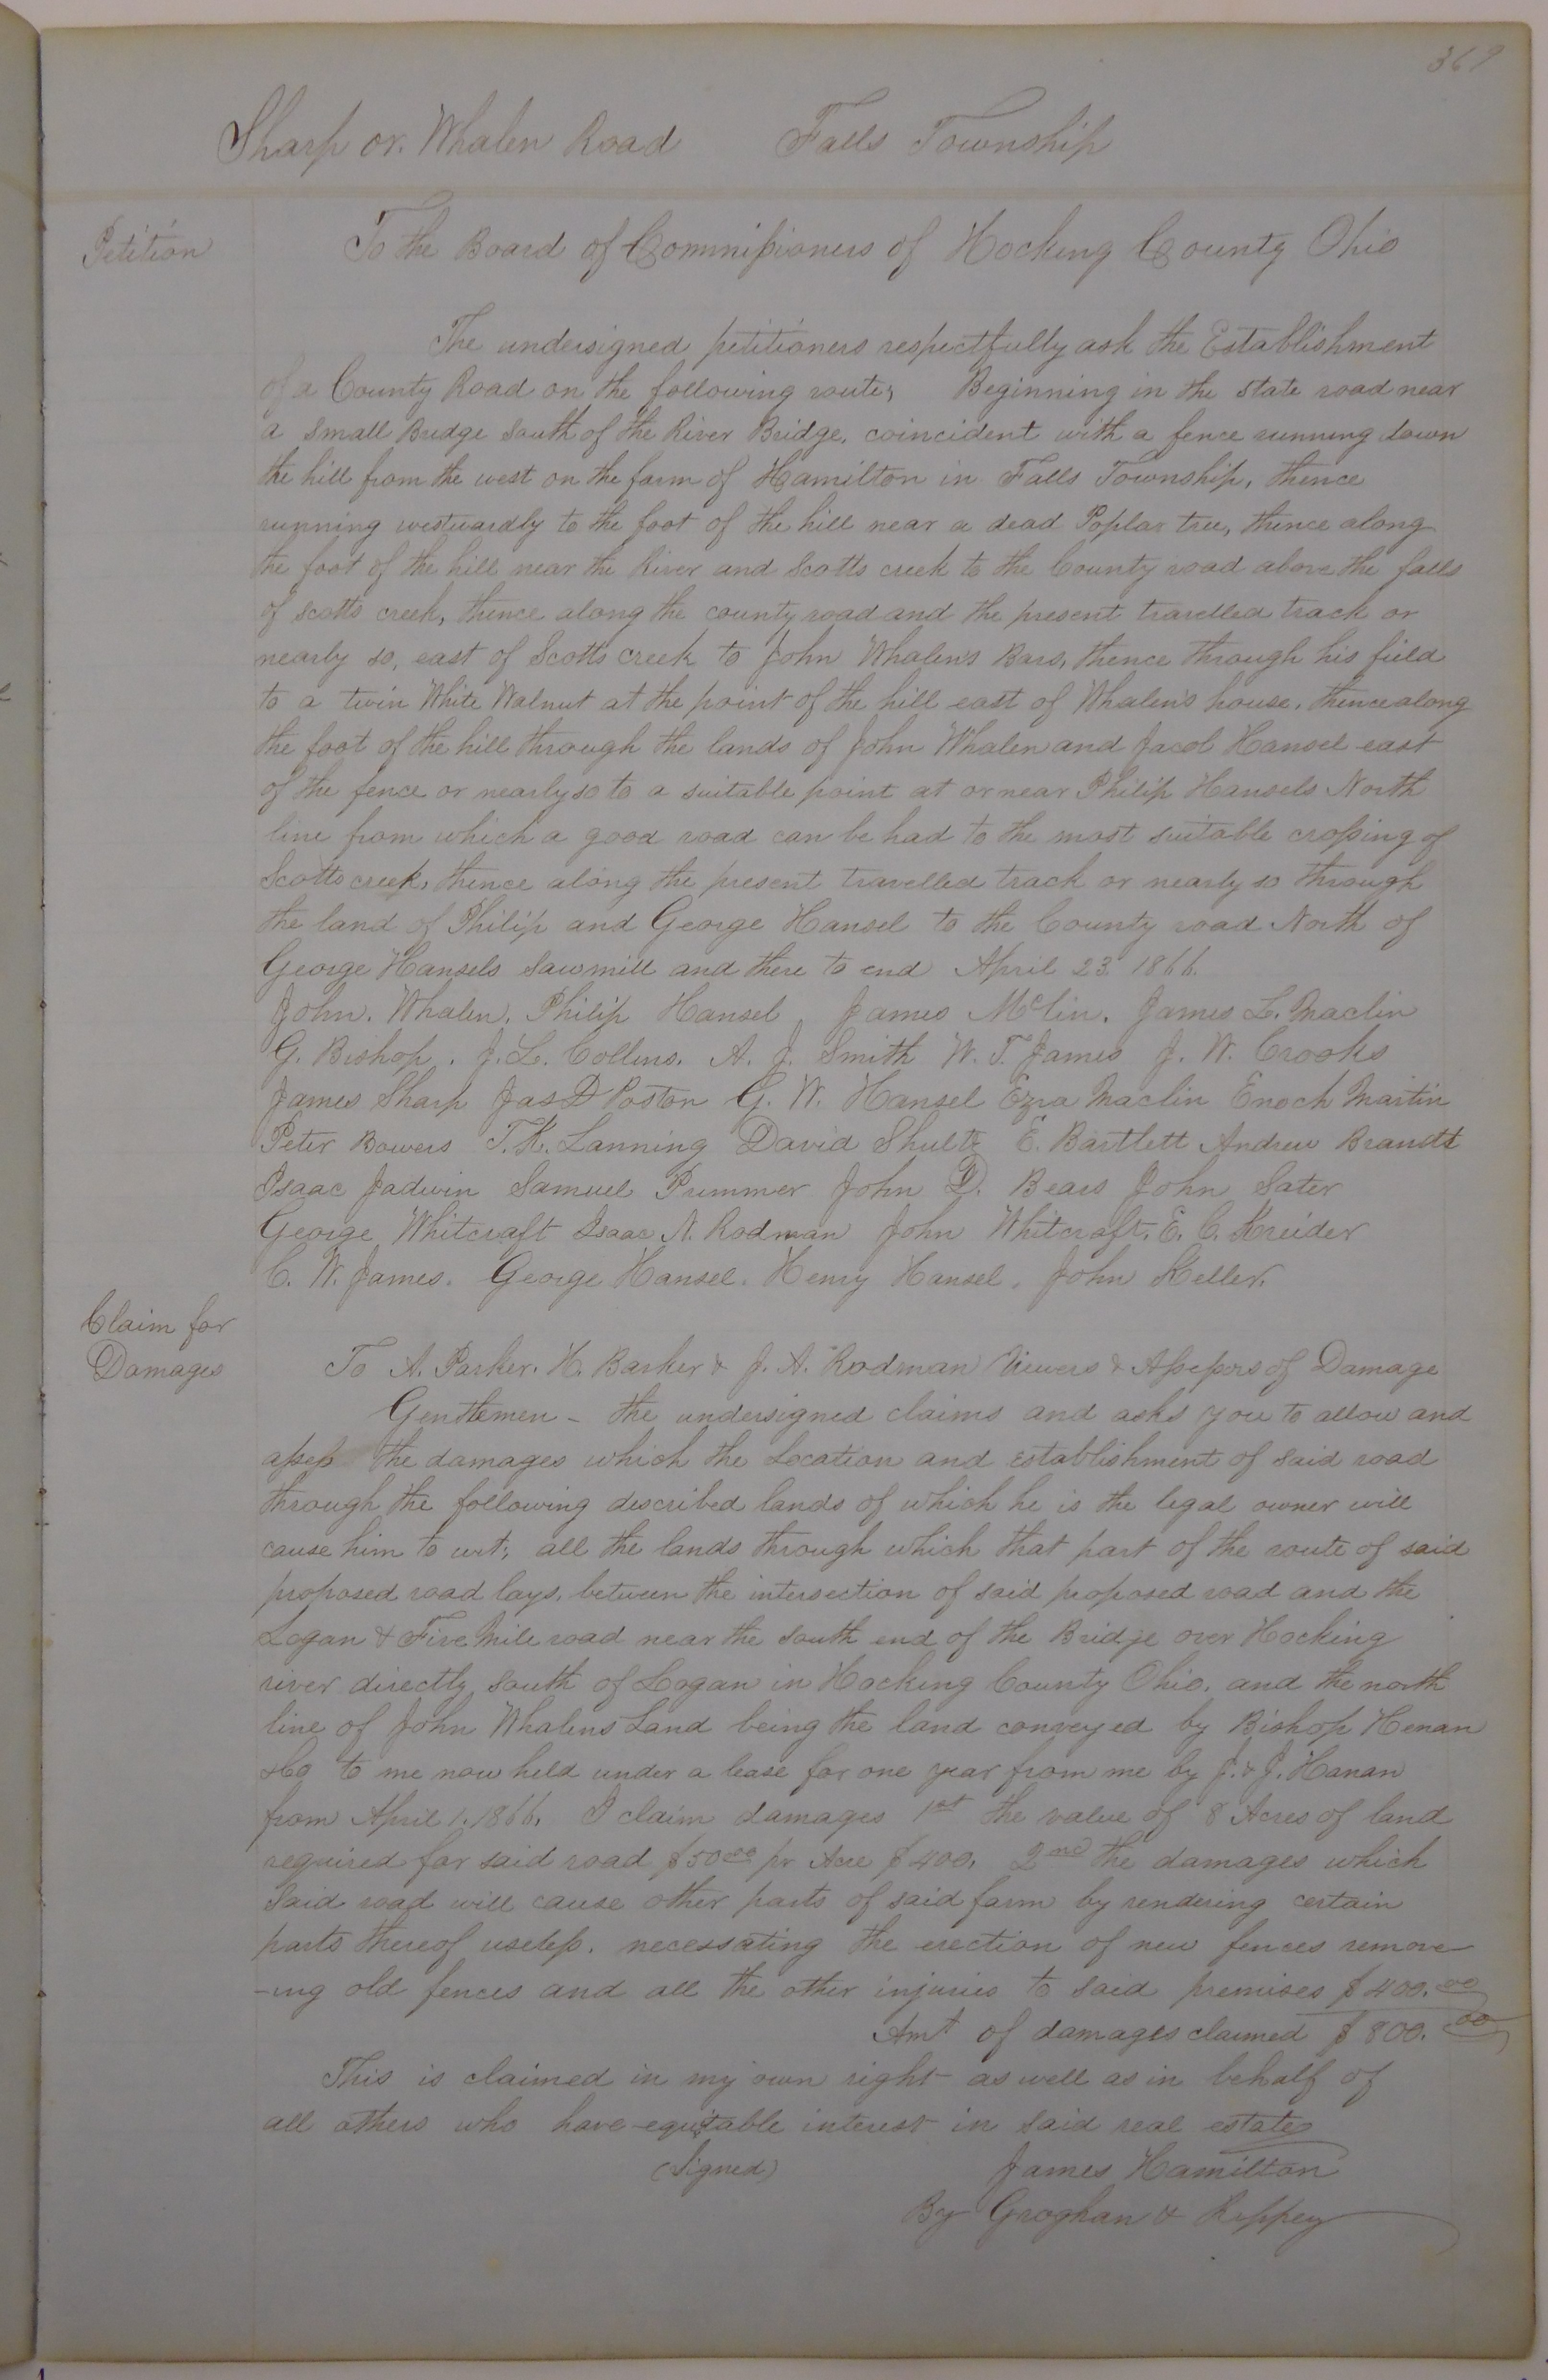 369
Sharp or. Whalen Road Falls Township
Petition
To the Board of Commissioners of Hocking County Ohio
The undersigned petitioners respectfully ask the Establishment
of a County Road on the following route; Beginning in the State road near
a small Bridge South of the River Bridge, coincident with a fence running down
the hill from the west on the farm of Hamilton in Falls Township, thence
running westwardly to the foot of the hill near a dead Poplar tree, thence along
the foot of the hill near the River and Scotts creek to the County road above the falls
of scotts creek, thence along the county road and the present travelled track or
nearly so, east of Scotts creek to John Whalens Bars, thence through his field
to a twin White Walnut at the point of the hill east of Whalens house, thence along
the foot of the hill through the lands of John Whalen and Jacob Hansel east
of the fence or nearly so to a suitable point at or near Philip Hansels North
line from which a good road can be had to the most suitable crossing of
Scotts creek, thence along the present travelled track or nearly so through
the land of Philip and George Hansel to the County road North of
George Hansels Sawmill and there to end April 23. 1866.
John. Whalen. Philip Hansel, James McLin. James L. Maclin
G. Bishop. J. L. Collins. A. J. Smith W. T. James J. W. Crooks
James Sharp Jas D Poston G. W. Hansel Ezra Maclin Enoch Martin
Peter Bowers T. K. Lanning David Shultz E. Bartlett Andrew Brandt
Isaac Jadwin Samuel Pummer John D. Bears John Sater
George Whitcraft Isaac N. Rodman John Whitcraft. E. C. Kreider
C. W. James. George Hansel. Henry Hansel. John Keller.
Claim for
Damages
To A. Parker. H. Barker & J. A. Rodman Viewers & Assessors of Damage
Gentlemen - the undersigned claims and asks you to allow and
assess the damages which the Location and establishment of said road
through the following described lands of which he is the legal owner will
cause him to wit; all the lands through which that part of the route of said
proposed road lays, between the intersection of said proposed road and the
Logan & Five Mile road near the South end of the Bridge over Hocking
river directly South of Logan in Hocking County Ohio, and the north
line of John Whalens Land being the land conveyed by Bishop Henan
&Co to me now held under a lease for one year from me by J. & J. Hanan
from April 1. 1866. I claim damages 1st the value of 8 Acres of land
required for said road $50.00 pr Acre $400. 2nd the damages which
Said road will cause other parts of said farm by rendering certain
parts thereof useless. necessating the erection of new fences remove-
-ing old fences and all the other injuries to said premises $400.00
Amt of damages claimed $800.00
This is claimed in my own right as well as in behalf of
all others who have equitable interest in said real estate
(Signed) James Hamilton
By Groghan & Rippey